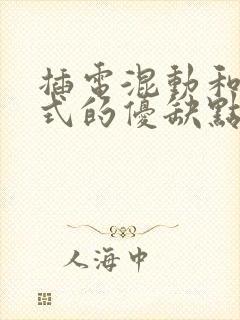 插電混動和
式的優缺點
人海中